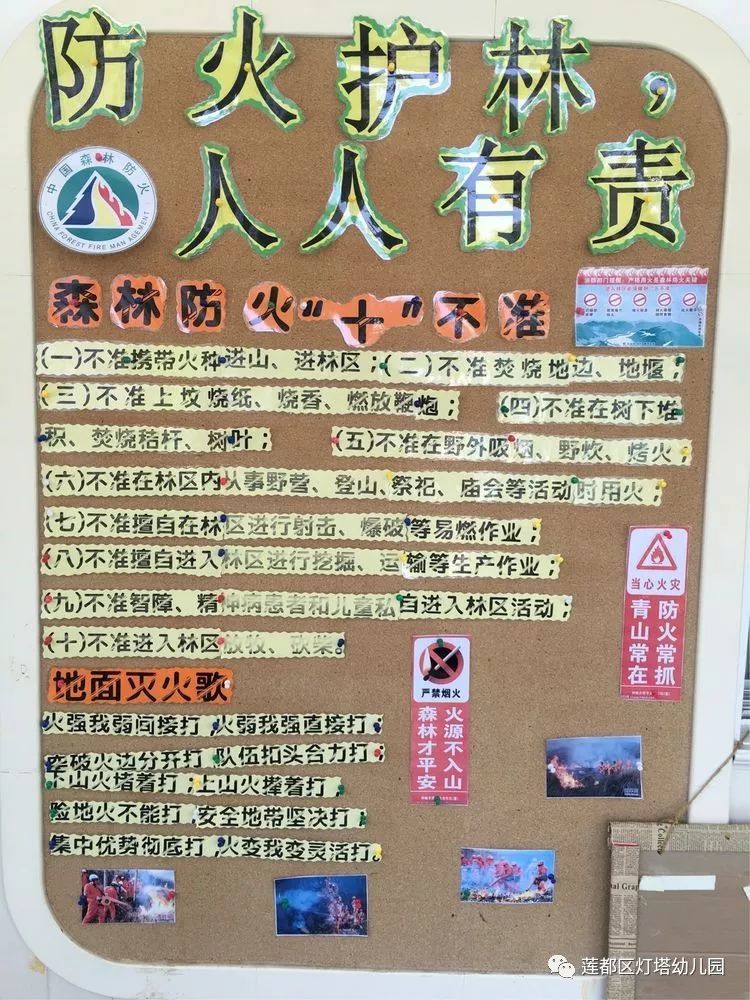 防火护林，
人人有责
中国森林防火
CHINA FOREST FIRE MAN AGEMENT
森林防火“十”不准
(一)不准携带火种进山、进林区；(二)不准焚烧地边、地堰；
(三)不准上坟烧纸、烧香、燃放鞭炮；(四)不准在树下堆
积、焚烧秸杆、树叶；(五)不准在野外吸烟、野炊、烤火；
(六)不准在林区内从事野营、登山、祭祀、庙会等活动时用火；
(七)不准擅自在林区进行射击、爆破等易燃作业；
(八)不准擅自进入林区进行挖掘、运输等生产作业；
(九)不准智障、精神病患者和儿童私自进入林区活动；
(十)不准进入林区放牧、砍柴。
当心火灾
防火常抓
青山常在
严禁烟火
火源不入山
森林才平安
地面灭火歌
火强我弱间接打，火弱我强直接打；
突破火边分开打，队伍扣头合力打；
下山火堵着打，上山火撵着打，
险地火不能打，安全地带坚决打，
集中优势彻底打，火变我变灵活打，
莲都区灯塔幼儿园